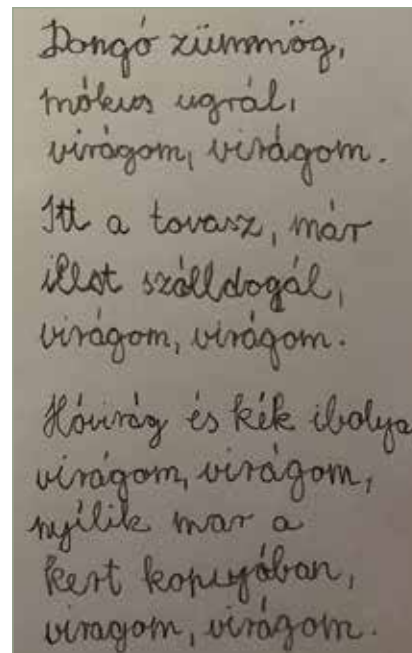 Dongó zümmög,
mókus ugrál,
virágom, virágom.
Itt a tovasz, már
illat szálldogál,
virágom, virágom.
Hóvirág és kék ibolya
virágom, virágom,
nyílik mar a
kert kapujában,
viragom, virágom.